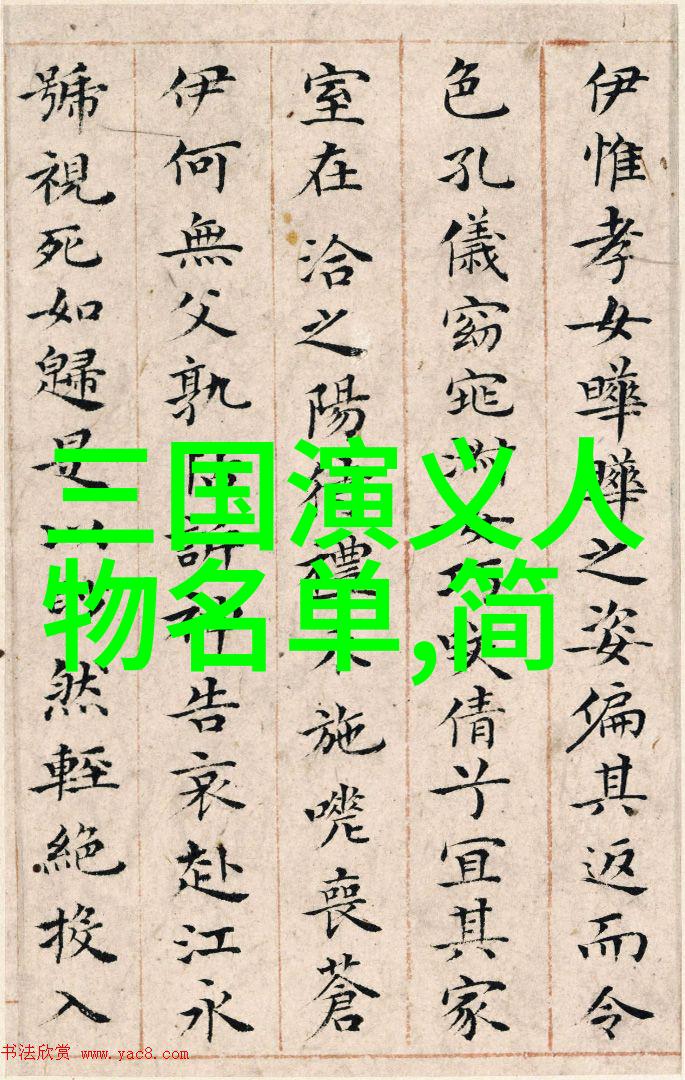 三国演义人
物名单,简
伊惟孝女曄曄之姿偏其返而令
色孔儀窈窕淑女巧咲倩兮宜其家
室在洽之陽待禮未施嗟喪蒼
伊何無父孰訴神告哀赴江永
號視死如歸是以然輕絕投入
书法欣赏 www.yac8.com